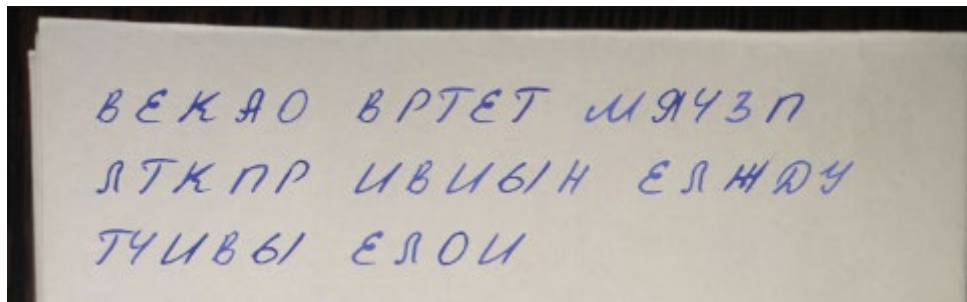 ВЕКАО ВРТЕТ МЯЧЗП
ЛТКПР ИВИЫН ЕЛЖДУ
ТЧИВЫ ЕЛОИ